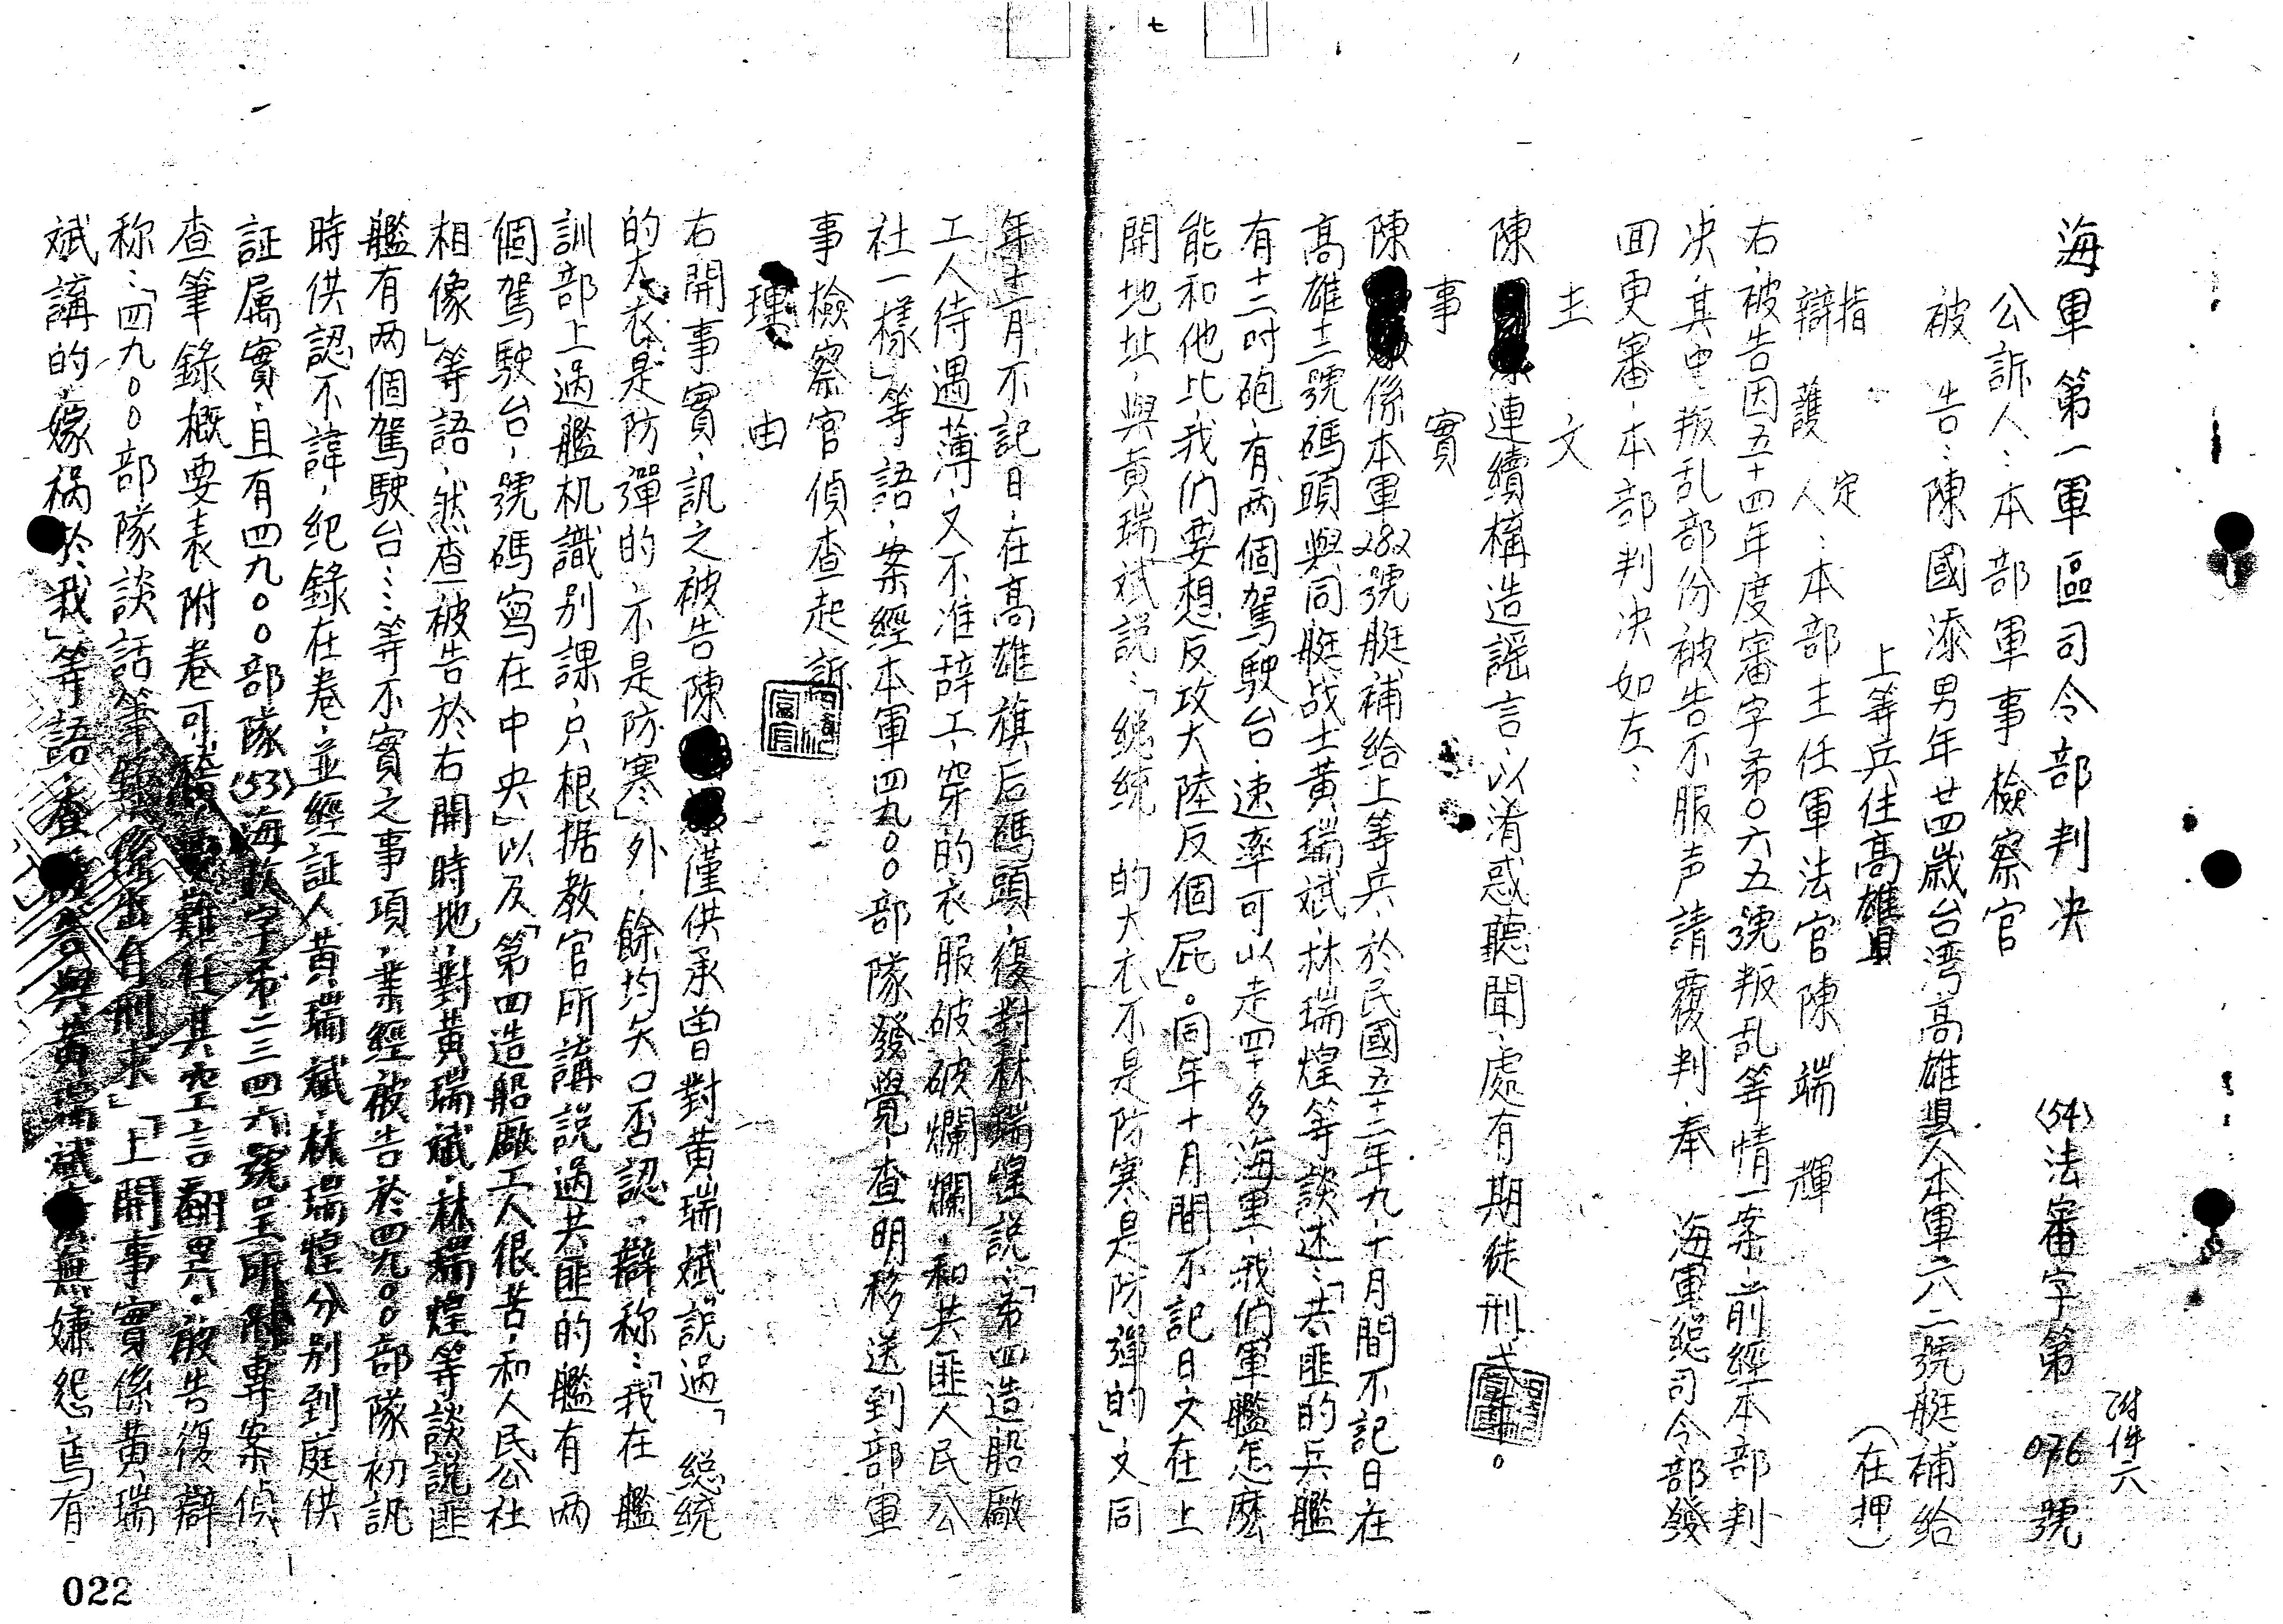 七
附件六
海軍第一軍區司令部判决 〈54〉法審字第076號
公訴人：本部軍事檢察官
被告：陳國添男年廿四歲台湾高雄縣人本軍六二號艇補給
上等兵住高雄縣 （在押）
指定
辯護人：本部主任軍法官陳端輝
右、被告因五十四年度審字第〇六五號叛乱等情一案，前經本部判
决，其中叛乱部份被告不服声請覆判，奉 海軍總司令部發
回更審，本部判决如左：
主文
陳 連續構造謠言，以淆惑聽聞，處有期徒刑弍年。
事實
陳 係本軍282號艇補給上等兵，於民國五十二年九十月間不記日在
高雄十二號碼頭與同艇战士黃瑞斌、林瑞煌等談述：「共匪的兵艦
有十二吋砲，有两個駕駛台，速率可以走四十多海里，我們軍艦怎麼
能和他比我們要想反攻大陸反個屁」。同年十月間不記日又在上
開地址，與黃瑞斌說：「總統 的大衣不是防寒是防彈的」又同
年十二月不記日，在高雄旗后碼頭，復對林瑞煌說：「第四造船廠
工人待遇薄，又不准辞工，穿的衣服破破爛爛，和共匪人民公
社一樣」等語，案經本軍四九〇〇部隊發覺，查明移送到部軍
事檢察官偵查起訴
理由
右開事實，訊之被告陳 僅供承曾對黃瑞斌說過「總統
的大衣是防彈的，不是防寒」外，餘均矢口否認，辯称：「我在艦
訓部上過艦机識别課，只根据教官所講說過共匪的艦有两
個駕駛台，號碼寫在中央」以及「第四造船廠工人很苦，和人民公社
相像」等語，然查被告於右開時地，對黃瑞斌，林瑞煌等談說匪
艦有两個駕駛台……等不實之事項，業經被告於四九〇〇部隊初訊
時供認不諱，紀錄在卷，並經証人黃瑞斌，林瑞煌分别到庭供
証属實，且有四九〇〇部隊〈53〉海 字第二三四六號呈 專案偵
查筆錄概要表附卷可稽， 難任其空言翻異。被告復辯
称：「四九〇〇部隊談話筆錄 刑求」「上開事實係黃瑞
斌講的，嫁禍於我」等語，查 與黃瑞斌 無嫌怨，焉有
022